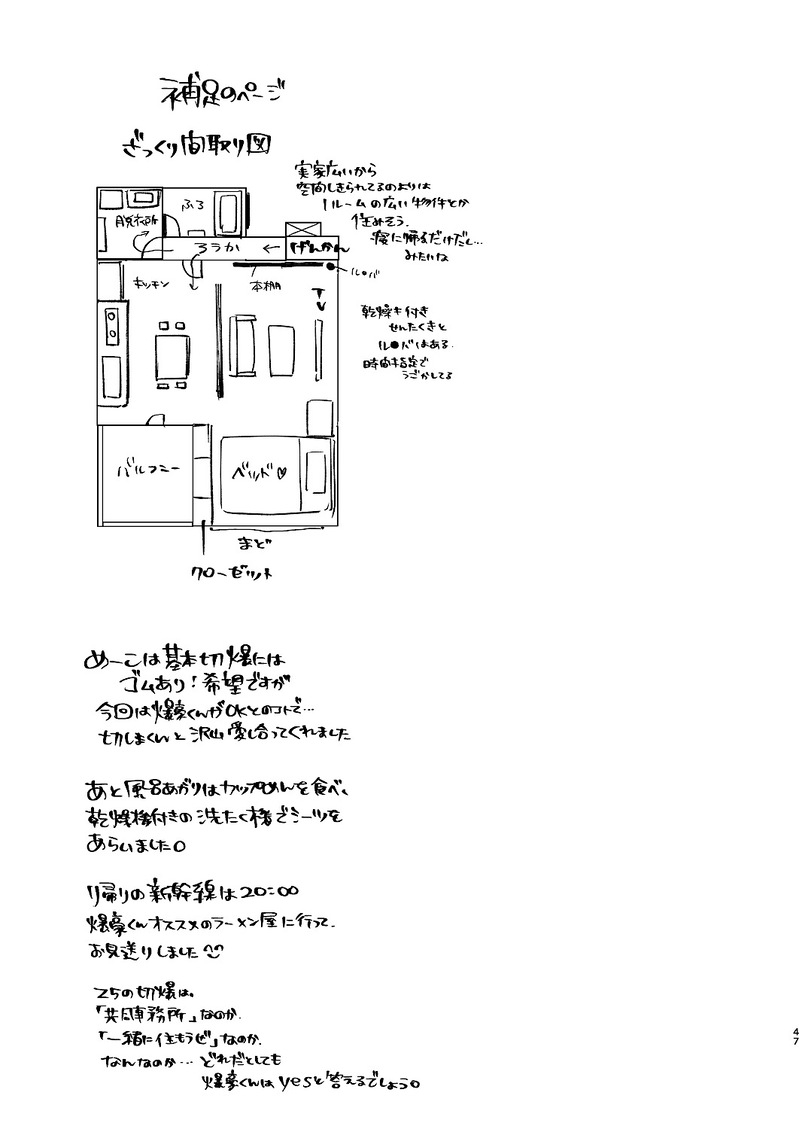 補足のページ
ざっくり間取り図
実家広いから
空間しきられてるのよりは
1ルームの広い物件とか
住みそう.
寝に帰るだけだし…
みたいな
脱衣所
ふろ
ろうか
←
げんかん
ル●バ
キッチン
本棚
TV
乾燥キ付き
せんたくきと
ル●バはある.
時間指定で
うごかしてる
バルコニー
ベッド♡
まど
クローゼット
めーこは基本切爆には
ゴムあり!希望ですが
今回は爆豪くんがOKとのコトで…
切しまくんと沢山愛し合ってくれました
あと風呂あがりはカップめんを食べ、
乾燥機付きの洗たく機でシーツを
あらいました。
り帰りの新幹線は20:00
爆豪くんオススメのラーメン屋に行って.
お見送りしました
25の切爆は。
「共同事務所」なのか.
「一緒に住もうぜ」なのか.
なんなのか…どれだとしても
爆豪くんはyesと答えるでしょう。
47